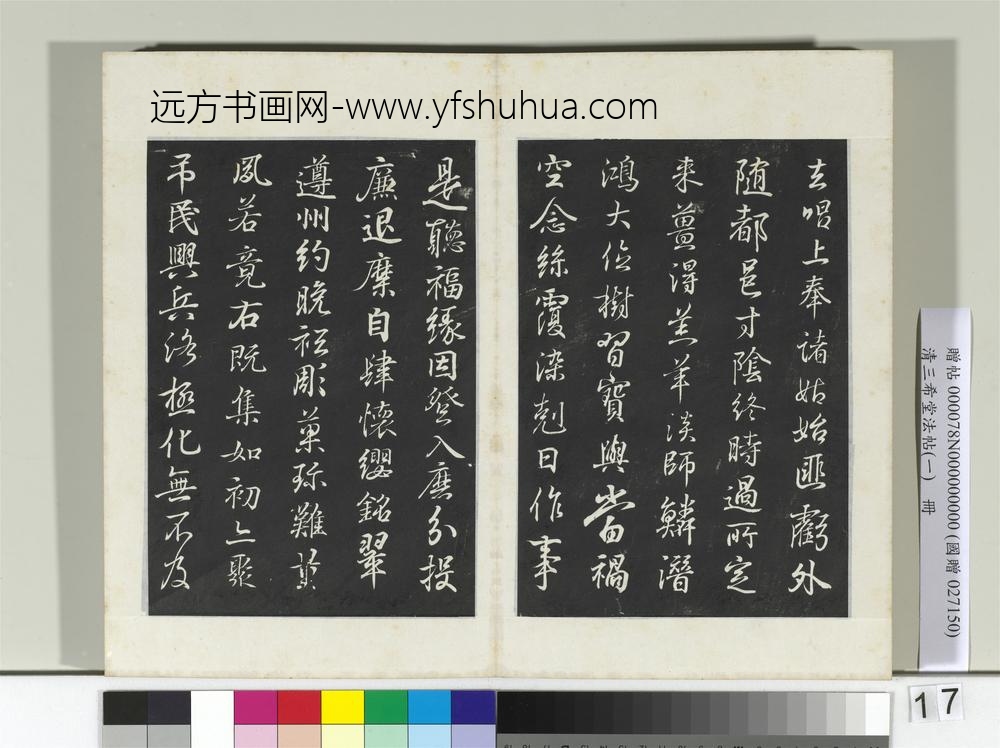 远方书画网-www.yfshuhua.com
去唱上奉諸姑始匪虧外
随都邑寸陰終時過所定
来薑得羔羊淡師鱗潛
鴻大位樹習寶興當禍
空念絲覆染剋日作事
是聽福緣因登入麽分投
廉退糜自肆懷纓銘翠
遵州約晚祗彫菓珎難
夙若竟右既集如初亦聚
吊民興兵洛極化無不及
贈帖 000078N000000000 (國贈 027150)
清三希堂法帖(一) 冊
17